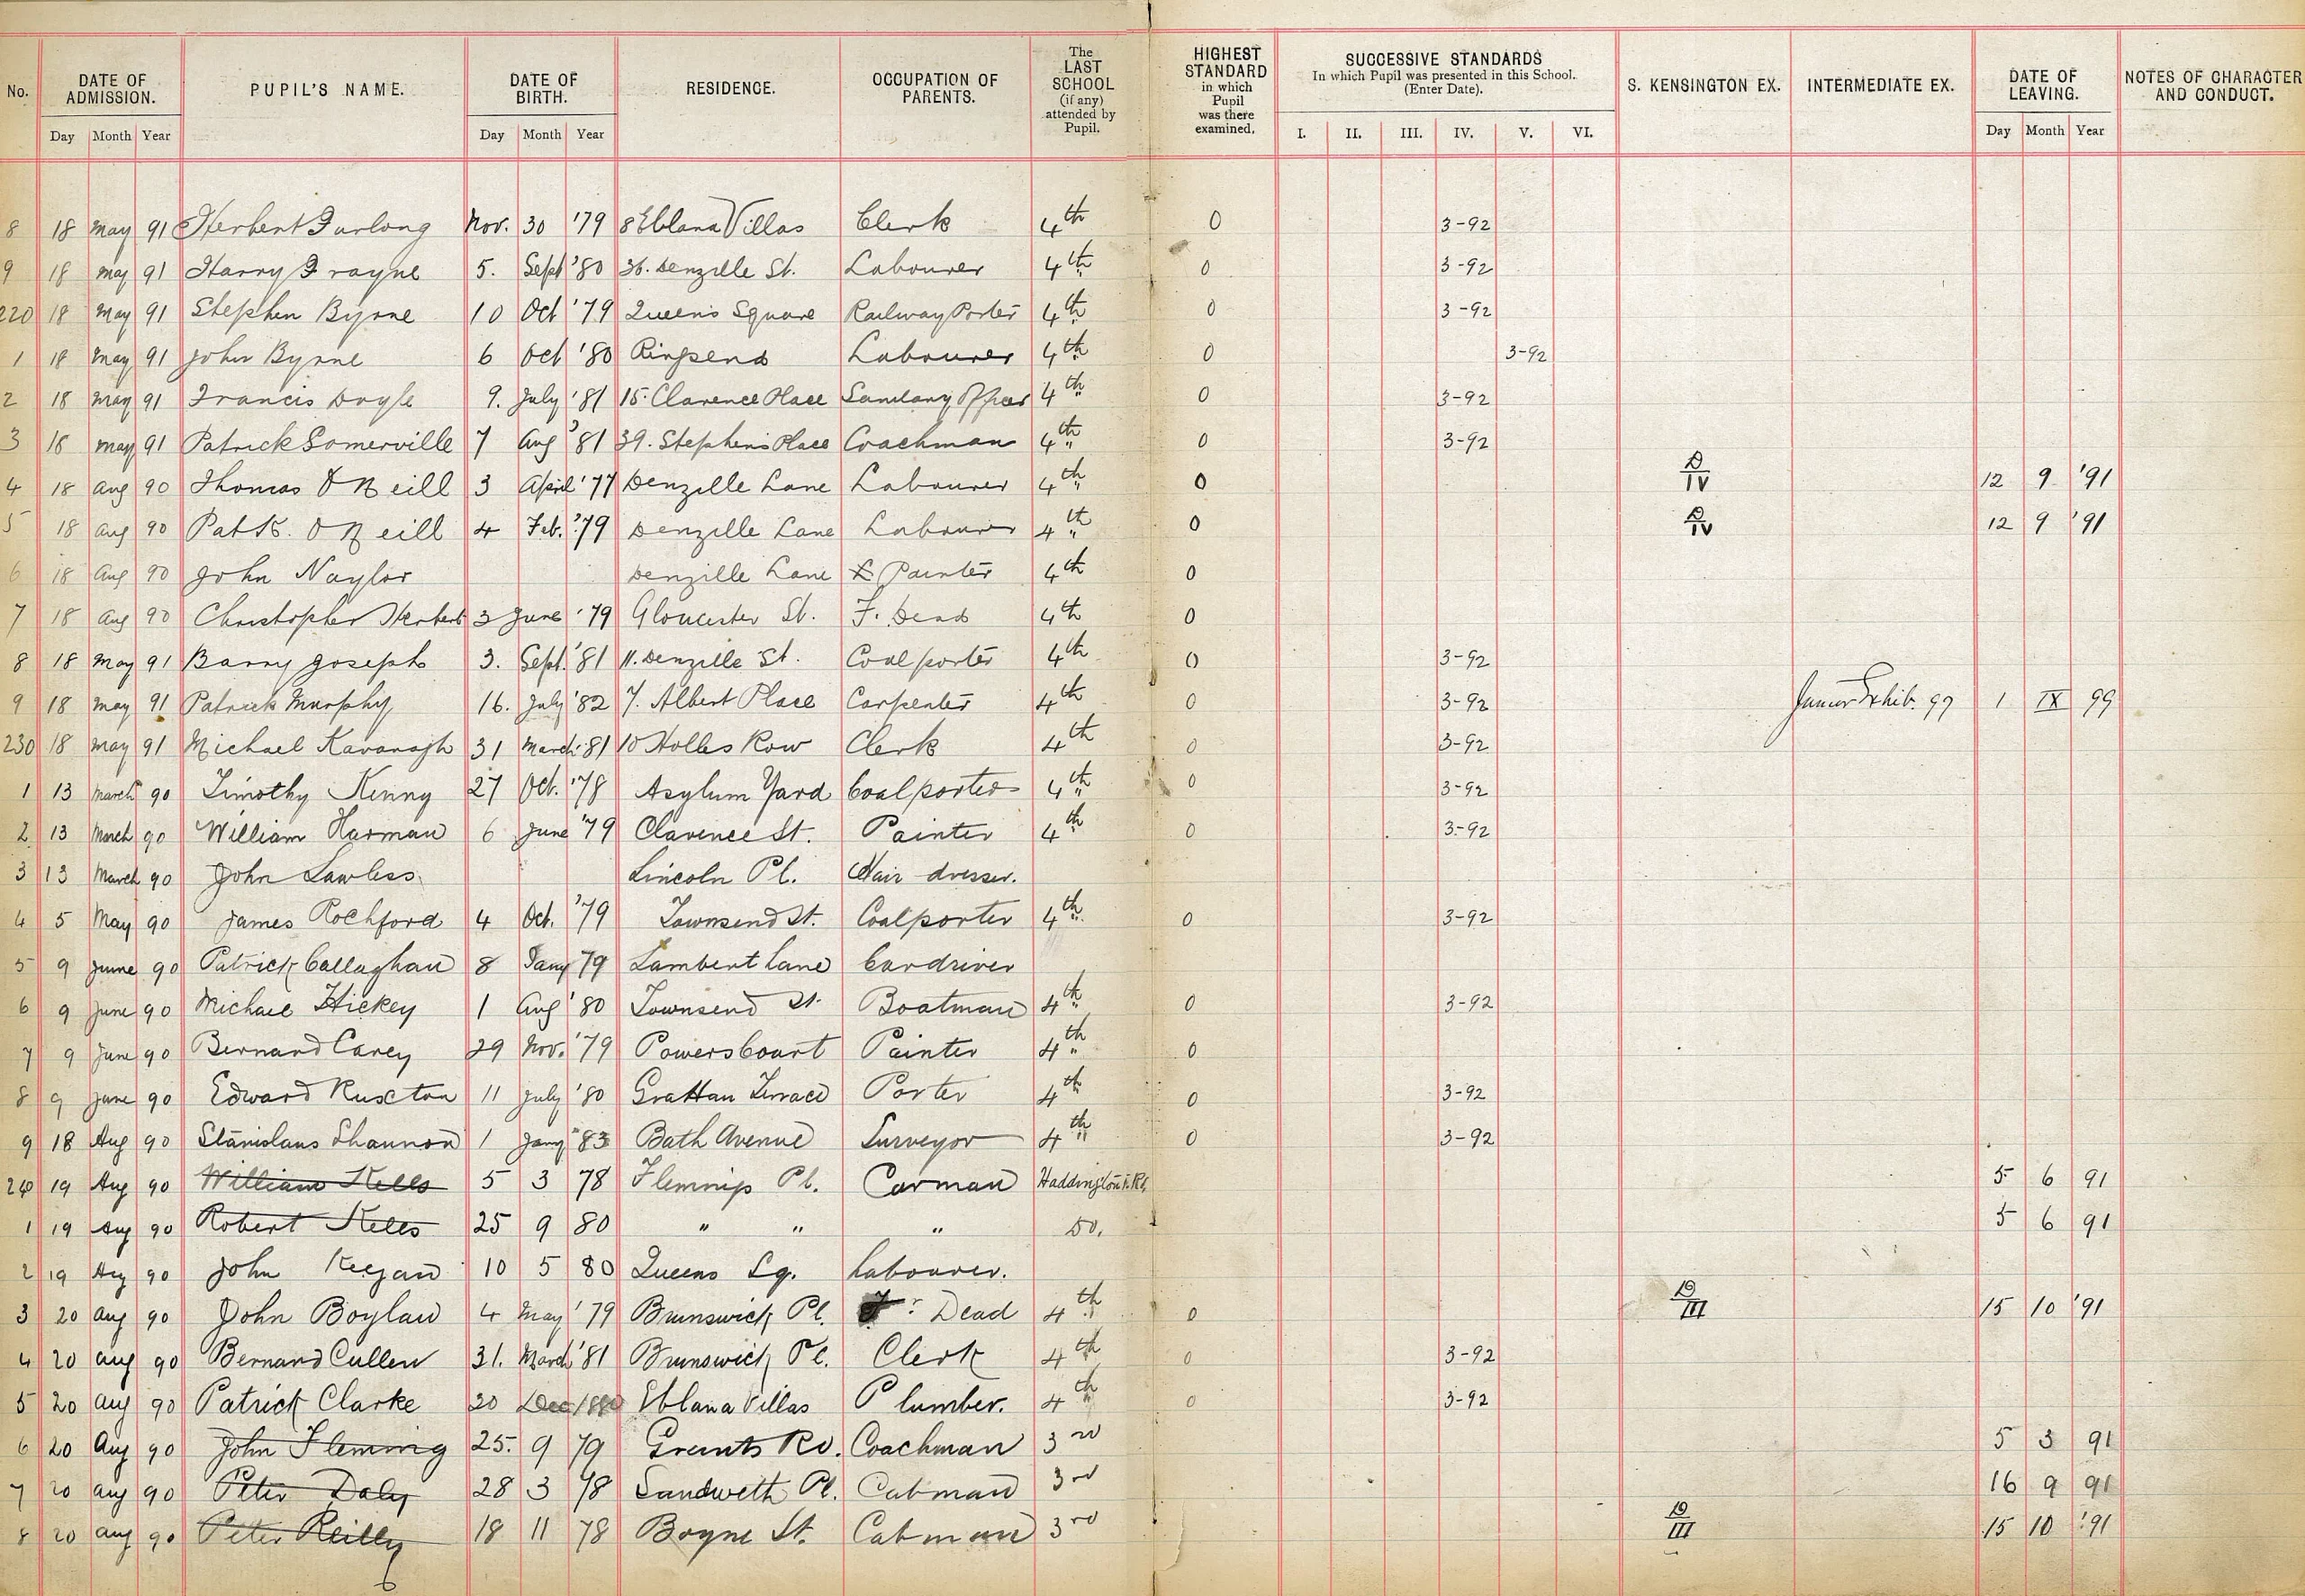 No. DATE OF ADMISSION. PUPIL'S NAME. DATE OF BIRTH. RESIDENCE. OCCUPATION OF PARENTS. The LAST SCHOOL (if any) attended by Pupil. HIGHEST STANDARD in which Pupil was there examined. SUCCESSIVE STANDARDS In which Pupil was presented in this School. (Enter Date). S. KENSINGTON EX. INTERMEDIATE EX. DATE OF LEAVING. NOTES OF CHARACTER AND CONDUCT.
Day Month Year Day Month Year I. II. III. IV. V. VI. Day Month Year
8 18 May 91 Herbert Furlong Nov. 30 '79 8 Eblana Villas Clerk 4th 0 3-92
9 18 May 91 Harry Frayne 5. Sept '80 36. Denzille St. Labourer 4th 0 3-92
220 18 May 91 Stephen Byrne 10 Oct '79 Queen's Square Railway Porter 4th 0 3-92
1 18 May 91 John Byrne 6 Oct '80 Ringsend Labourer 4th 0 3-92
2 18 May 91 Francis Doyle 9. July '81 15. Clarence Place Sanitary Officer 4th 0 3-92
3 18 May 91 Patrick Somerville 7 Aug '81 39. Stephen's Place Coachman 4th 0 3-92
4 18 Aug 90 Thomas O Neill 3 April '77 Denzille Lane Labourer 4th 0 D IV 12 9 '91
5 18 Aug 90 Patk. O Neill 4 Feb. '79 Denzille Lane Labourer 4th 0 D IV 12 9 '91
6 18 Aug 90 John Naylor Denzille Lane Painter 4th 0
7 18 Aug 90 Christopher Herbert 3 June '79 Gloucester St. F. Dead 4th 0
8 18 May 91 Barry Joseph 3. Sept. '81 11. Denzille St. Coalporter 4th 0 3-92
9 18 May 91 Patrick Murphy 16. July '82 7. Albert Place Carpenter 4th 0 3-92 Junior Exhib. 97 1 IX 99
230 18 May 91 Michael Kavanagh 31 March '81 10 Holles Row Clerk 4th 0 3-92
1 13 March 90 Timothy Kenny 27 Oct. '78 Asylum Yard Coalporter 4th 0 3-92
2 13 March 90 William Harman 6 June '79 Clarence St. Painter 4th 0 3-92
3 13 March 90 John Lawless Lincoln Pl. Hair dresser.
4 5 May 90 James Rochford 4 Oct. '79 Townsend St. Coalporter 4th 0 3-92
5 9 June 90 Patrick Callaghan 8 Jany 79 Lambert Lane Cardriver
6 9 June 90 Michael Hickey 1 Aug '80 Townsend St. Boatman 4th 0 3-92
7 9 June 90 Bernard Carey 29 Nov. '79 Powerscourt Painter 4th 0
8 9 June 90 Edward Ruxton 11 July '80 Grattan Terrace Porter 4th 0 3-92
9 18 Aug 90 Stanislaus Shannon 1 Jany 83 Bath Avenue Surveyor 4th 0 3-92
240 19 Aug 90 William Kells 5 3 78 Flemings Pl. Carman Haddington Rd. 5 6 91
1 19 Aug 90 Robert Kells 25 9 80 " " " Do. 5 6 91
2 19 Aug 90 John Keegan 10 5 80 Queens Sq. Labourer.
3 20 Aug 90 John Boylan 4 May '79 Brunswick Pl. Dead 4th 0 D III 15 10 '91
4 20 Aug 90 Bernard Cullen 31. March '81 Brunswick Pl. Clerk 4th 0 3-92
5 20 Aug 90 Patrick Clarke 20 Dec 1880 Eblana Villas Plumber. 4th 0 3-92
6 20 Aug 90 John Fleming 25. 9 79 Grants Ro. Coachman 3rd 5 3 91
7 20 Aug 90 Peter Daly 28 3 78 Sandwith Pl. Cabman 3rd 16 9 91
8 20 Aug 90 Peter Reilly 18 11 78 Boyne St. Cabman 3rd D III 15 10 '91